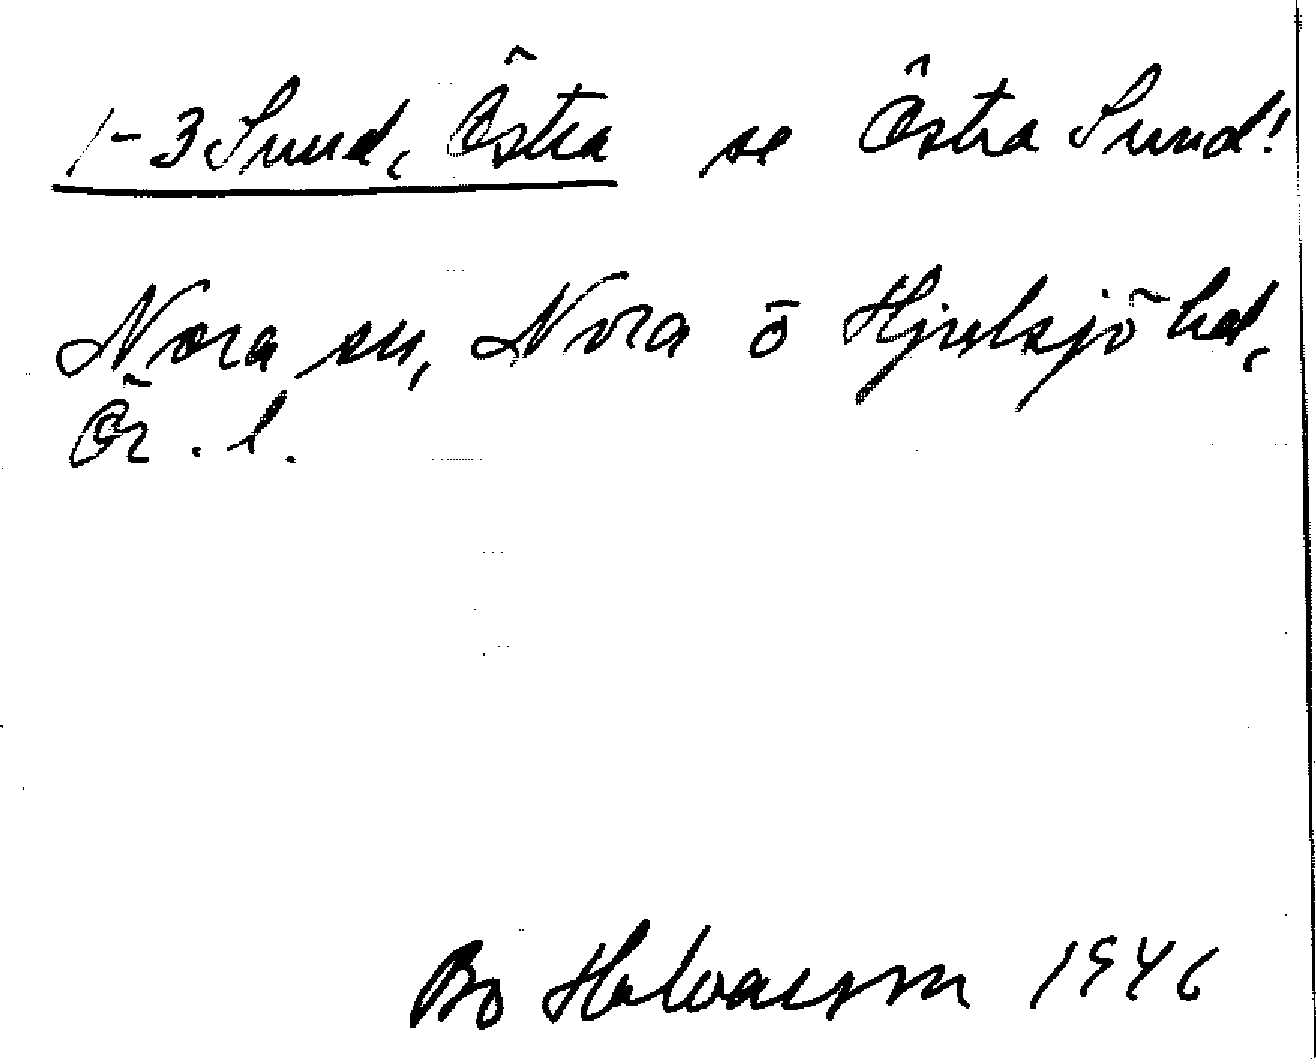 1-3 Sund, Östra se Östra Sund!
Nora sn, Nora o Hjulsjö hd,
Ör. l.
Bo Halvarsson 1946